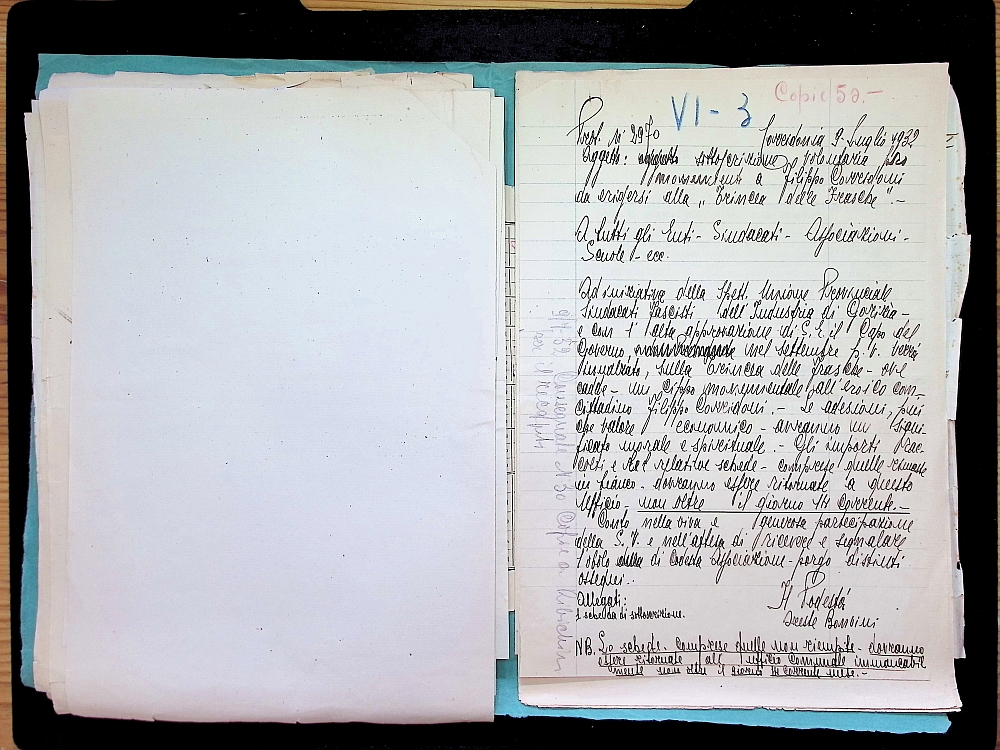 Copie 50.-
VI - 3
Prot. N 2970 Corridonia 9 Luglio 1932
Oggetto: sottoscrizione volontaria pro
monumento a Filippo Corridoni
da erigersi alla „ Trincea delle Frasche ".-
A tutti gli Enti - Sindacati - Associazioni -
Scuole - ecc.
Ad iniziativa della Spett. Unione Provinciale
Sindacati Fascisti dell'Industria di Gorizia -
e con l'alta approvazione di S. E. il Capo del
Governo, nel settembre p. v. verrà
innalzato, sulla Trincea delle Frasche - ove
cadde - un cippo monumentale all'eroico con-
cittadino Filippo Corridoni. - Le adesioni, più
che valore economico - avranno un signi-
ficato morale e spirituale. - Gli importi rac-
colti e le relative schede - comprese quelle rimaste
in bianco - dovranno essere ritornate a questo
Ufficio - non oltre il giorno 14 corrente.-
Conto nella viva e generosa partecipazione
della S. V. e nell'attesa di ricevere e segnalare
l'obolo di codesta Associazione - porgo distinti
ossequi..
Allegati:
1 scheda di sottoscrizione.
Il Podestà
Oreste Bonfini
NB. Le schede, comprese quelle non riempite - dovranno
essere ritornate all' ufficio Comunale immancabil
mente non oltre il giorno 14 corrente mese.-
9/7-32 Consegnate N 30 Copie a
per il recapito